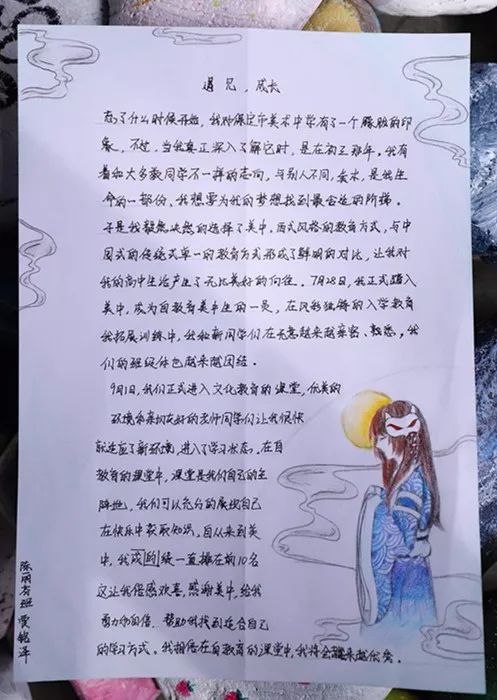 遇见，成长
忘了什么时候开始，我对保定市美术中学有了一个朦胧的印
象，不过，当我真正深入了解它时，是在初三那年，我有
着和大多数同学不一样的志向，与别人不同，美术，是我生
命的一部份，我想要为我的梦想找到最合适的阶梯。
于是我毅然决然的选择了美中。西式风格的教育方式，与中
国式的传统式单一的教育方式形成了鲜明的对比，让我对
我的高中生活产生了无比美好的向往。7月28日，我正式踏入
美中，成为自教育美中生的一员，在风格独特的入学教育
及拓展训练中，我和新同学们在无意越来越亲密、熟悉，我
们的班级体也越来越团结。
9月1日，我们正式进入文化教育的课堂，优美的
环境和亲切友好的老师同学们让我很快
就适应了新环境，进入了学习状态，在自
教育的课堂中，课堂是我们自己的主
阵地，我们可以充分的展现自己
在快乐中获取知识，自从来到美
中，我成的绩一直排在前10名
这让我倍感欢喜，感谢美中，给我
勇力和自信，帮助我找到适合自己
的学习方式。我相信在自教育的课堂中，我将会越来越优秀。
陈丽杏班